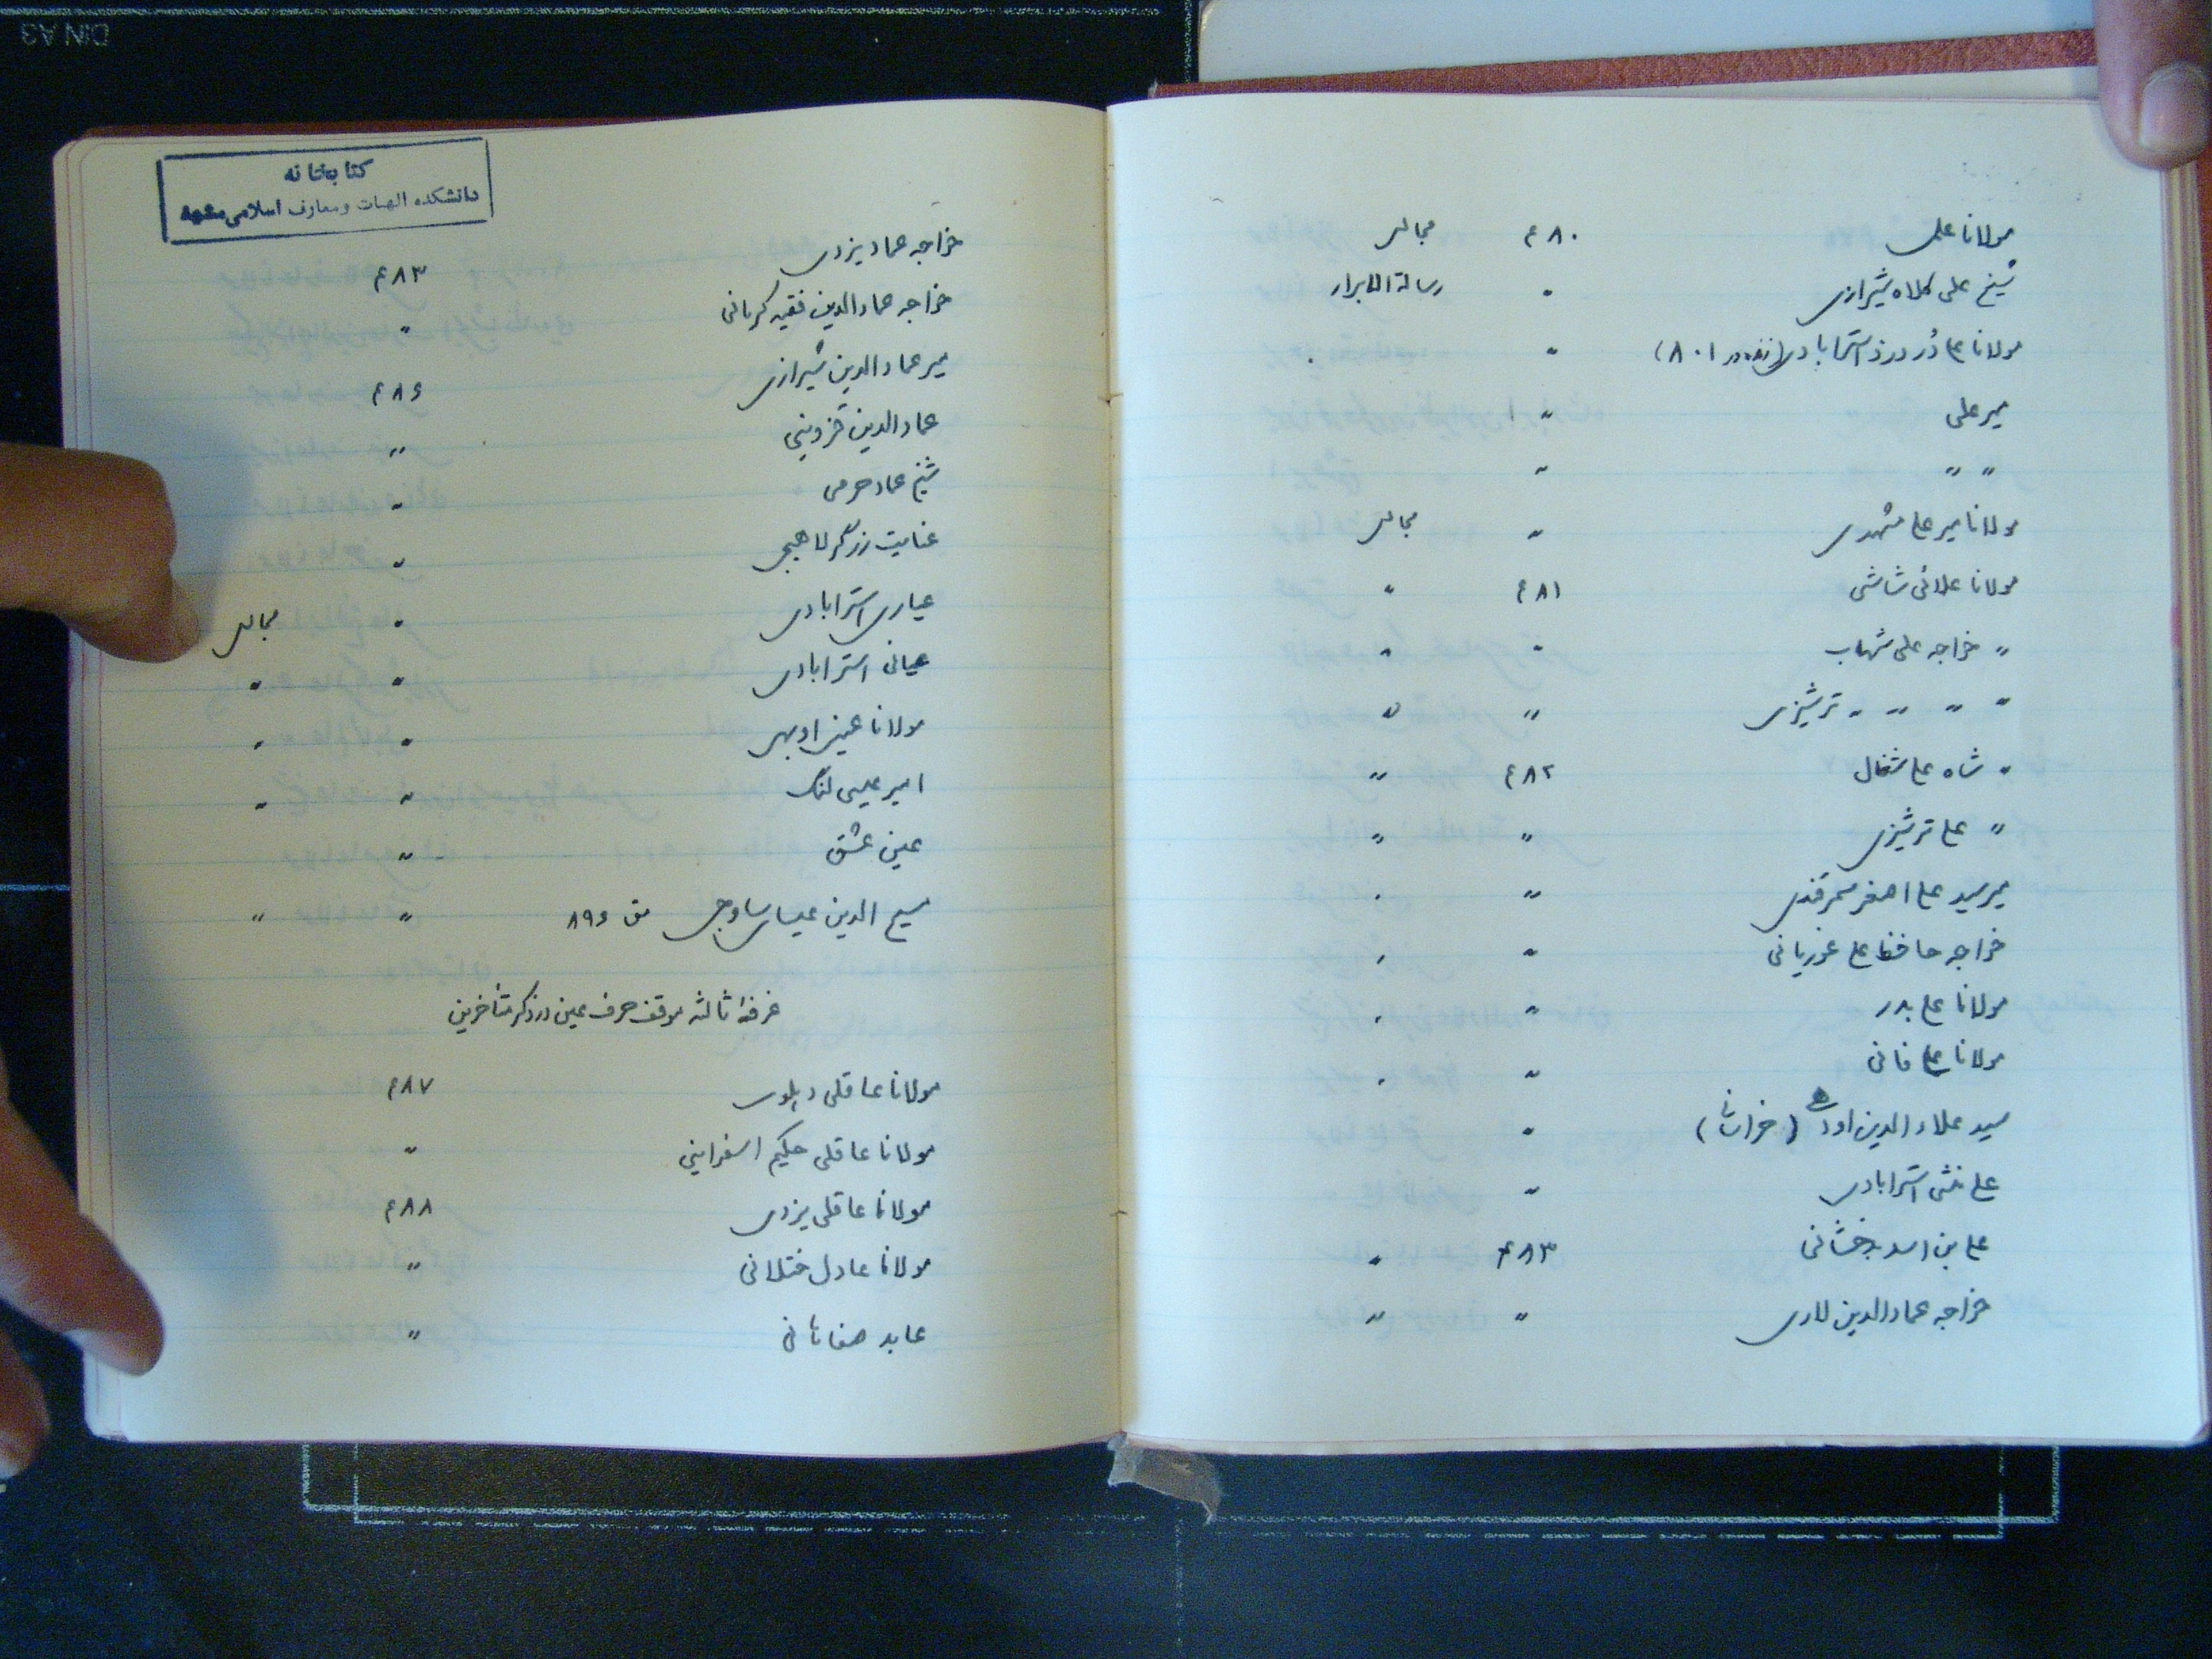 مولانا علی ۸۰م مجالس
شیخ علی کلاه شیرازی " رسالة الابرار
مولانا علی دُردزد استرابادی (زنده در ۸۰۱) "
میر علی "
" " "
مولانا میر علی مشهدی " مجالس
مولانا علائی شاشی ۸۱م "
" خواجه علی شهاب " "
" " " " ترشیزی " "
" شاه علی شغال ۸۲م "
" علی ترشیزی " "
میر سید علی اصغر سمرقندی " "
خواجه حافظ علی غوریانی " "
مولانا علی بدر " "
مولانا علی فانی " "
سید علاء الدین اودهی (خراسان) "
علی منشی استرابادی "
علی بن اسد بدخشانی ۸۳م "
خواجه عماد الدین لاری " "
کتابخانه
دانشکده الهیات و معارف اسلامی مشهد
خواجه عماد یزدی ۸۳م
خواجه عماد الدین فقیه کرمانی "
میر عماد الدین شیرازی ۸۶م
عماد الدین قزوینی "
شیخ عماد حرمی "
عنایت زرگر لاهیجی "
عیاری استرابادی " مجالس
عیانی استرابادی " "
مولانا اوبهی " "
امیر عیسی لنگ " "
عین عشق "
مسیح الدین عیسای ساوجی متـ ۸۹۶ " "
غرفهٔ ثالثه موقف حرف عین در ذکر متأخرین
مولانا عاقلی دهلوی ۸۷م
مولانا عاقلی حکیم اسفراینی "
مولانا عاقلی یزدی ۸۸م
مولانا عادل ختلانی "
عابد صفاتانی "
DIN A3